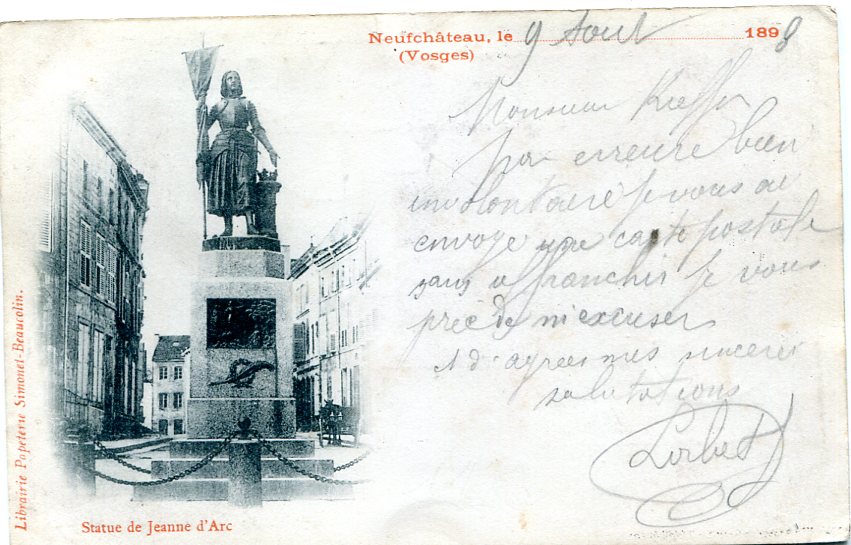 Neufchâteau, le 9 Aout 1898
(Vosges)
Monsieur Kieffer
par erreure bien
involontaire je vous ai
envoye une carte postale
sans affranchir je vous
prie de m'excuser
et d'agréer mes sinceres
salutations
Lorbert
Librairie Papeterie Simonet-Beaucolin.
Statue de Jeanne d'Arc